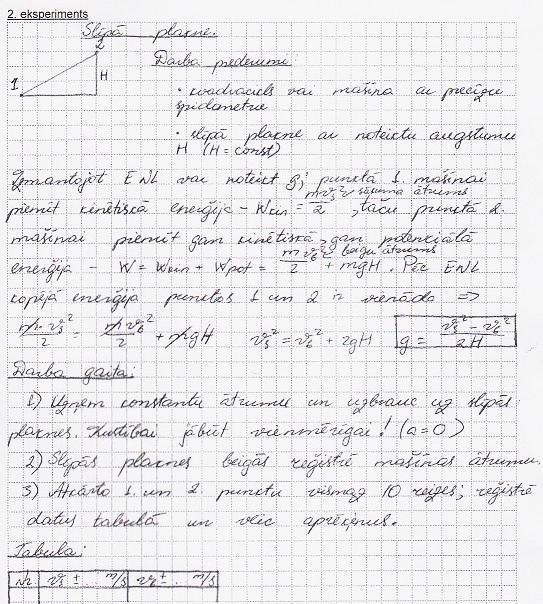 2. eksperiments
Slīpā plakne.
2
1
H
Darba piederumi:
• kvadracikls vai mašīna ar precīzu
spidometru
• slīpā plakne ar noteiktu augstumu
H (H = const)
Izmantojot ENL var noteikt g; punktā 1. mašīnai
piemīt kinētiskā enerģija - Wkin = mv²s/2 sākuma ātrums, taču punktā 2.
mašīnai piemīt gan kinētiskā, gan potenciālā
enerģija - W = Wkin + Wpot = mv²b/2 beigu ātrums + mgH. Pēc ENL
kopējā enerģija punktos 1 un 2 ir vienāda =>
m·vs²/2 = mvb²/2 + mgH   vs² = vb² + 2gH   g = (vs² - vb²)/2H
Darba gaita:
1) Uzņem konstantu ātrumu un uzbrauc uz slīpās
plaknes. Kustībai jābūt vienmērīgai! (a=0)
2) Slīpās plaknes beigās reģistrē mašīnas ātrumu.
3) Atkārto 1. un 2. punktu vismaz 10 reizes; reģistrē
datus tabulā un veic aprēķinus.
Tabula:
Nr. vs ± .. m/s